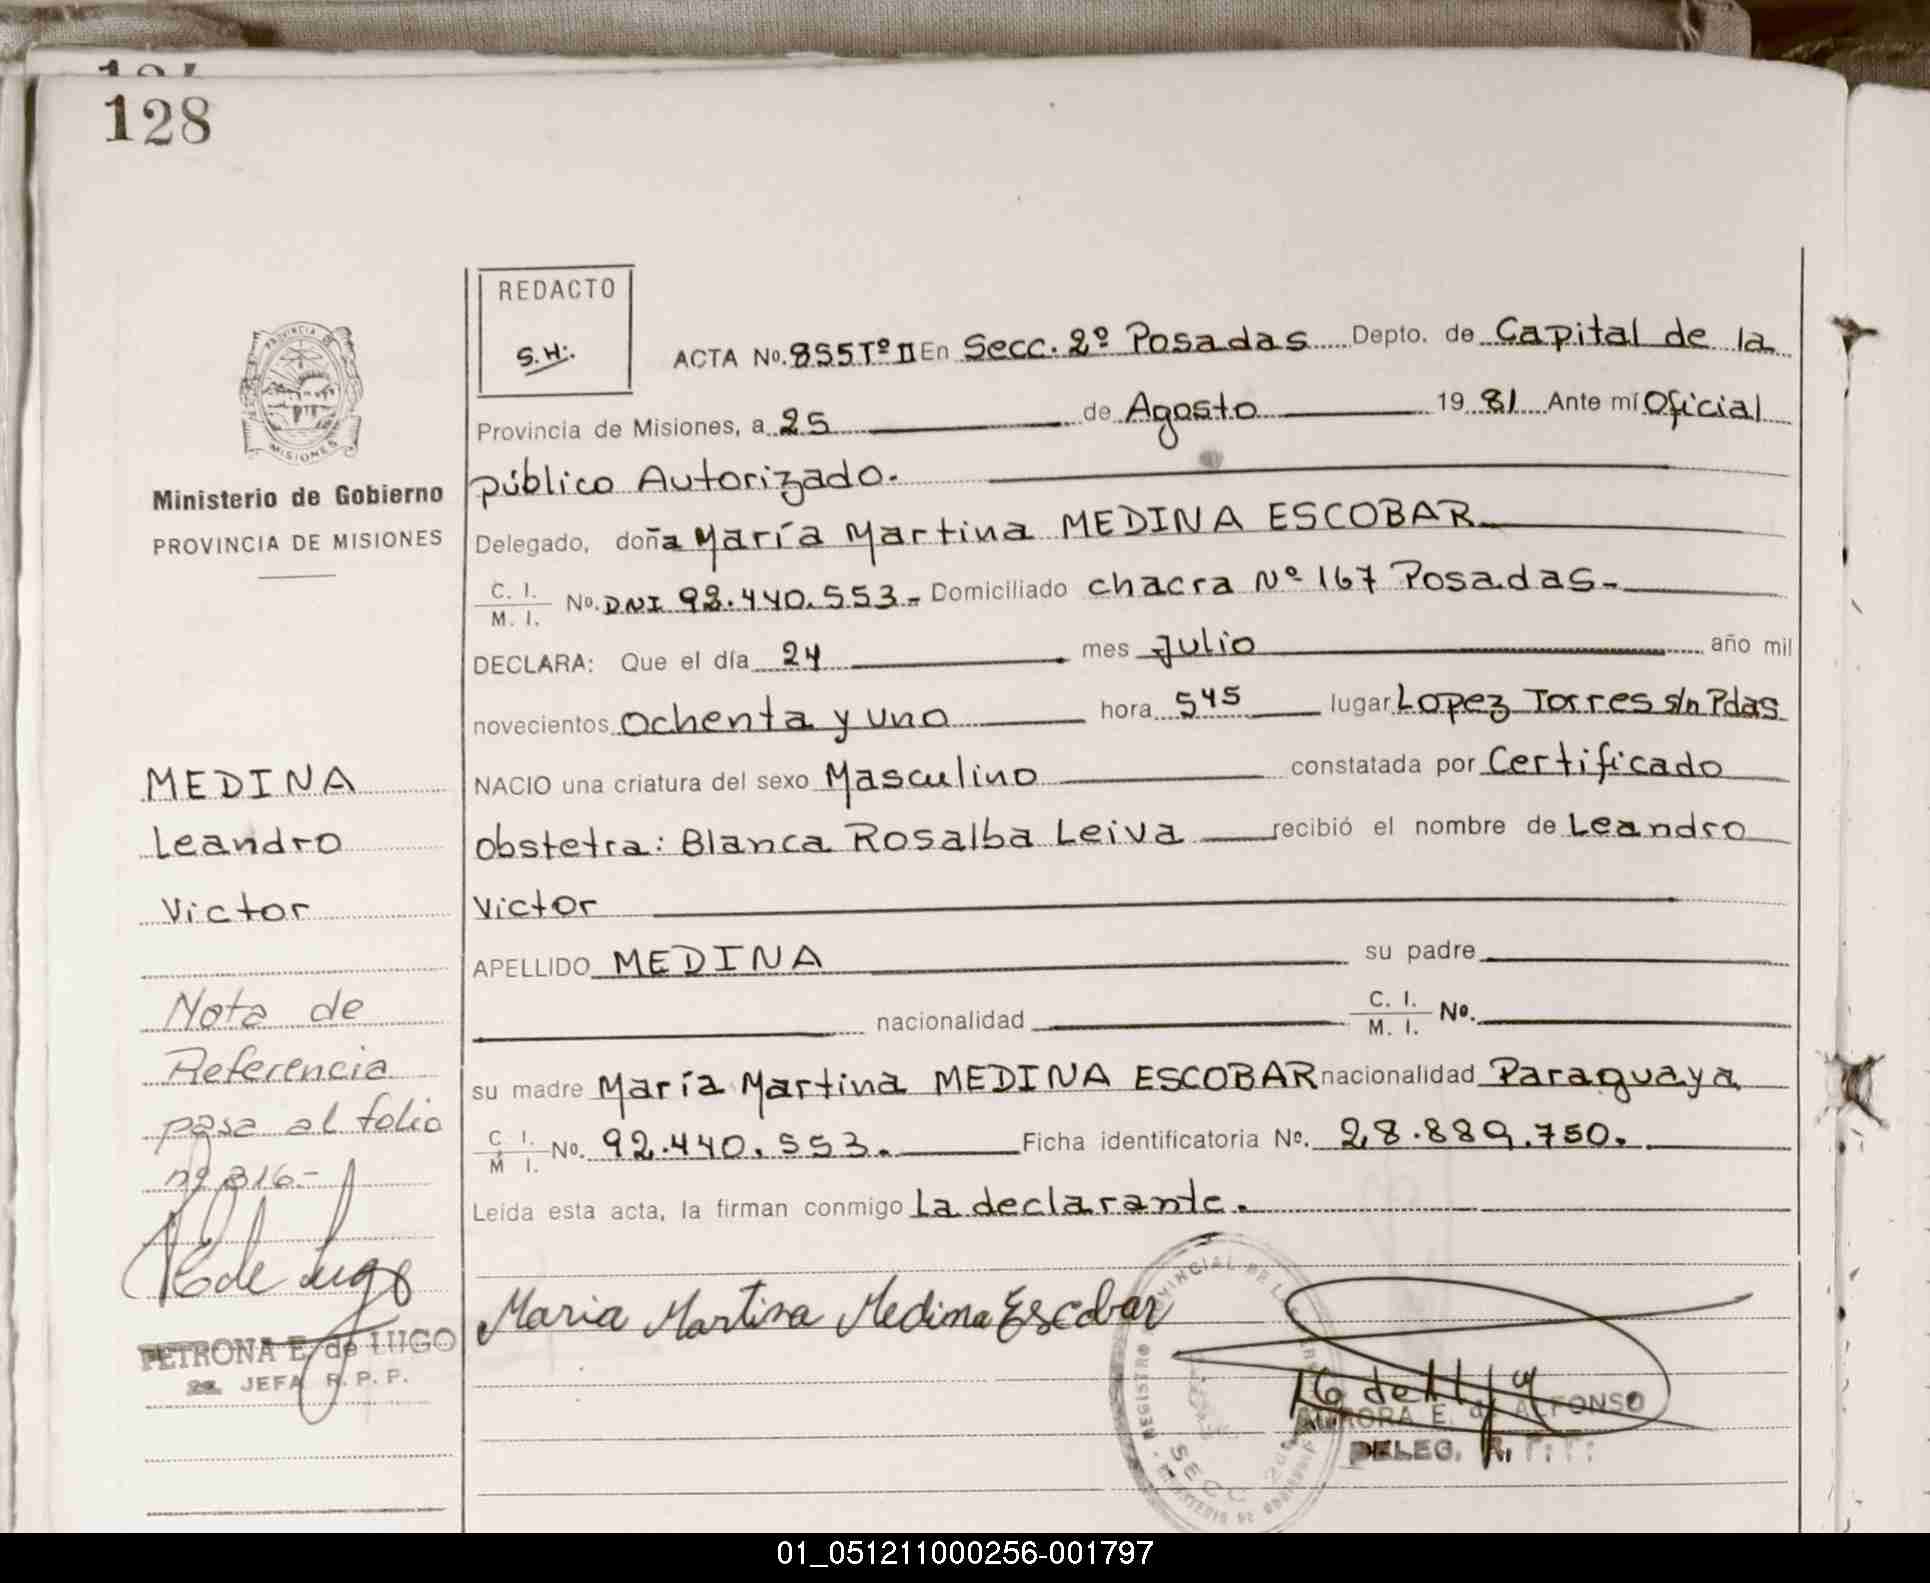 128
REDACTO
S.H:.
ACTA No. 855 Tº II En Secc. 2º Posadas Depto. de Capital de la
Provincia de Misiones, a 25 de Agosto 19 81 Ante mí Oficial
público Autorizado.
Delegado, doña María Martina MEDINA ESCOBAR
C. I.
M. I. No. DNI 92.440.553.- Domiciliado chacra Nº 167 Posadas.-
DECLARA: Que el día 24 mes Julio año mil
novecientos ochenta y uno hora 5 45 lugar Lopez Torres s/n Pdas
NACIO una criatura del sexo Masculino constatada por Certificado
obstetra: Blanca Rosalba Leiva recibió el nombre de Leandro
Victor
APELLIDO MEDINA su padre
nacionalidad C. I.
M. I. No.
su madre María Martina MEDINA ESCOBAR nacionalidad Paraguaya
C. I.
M. I. No. 92.440.553. Ficha identificatoria No. 28.889.750.
Leída esta acta, la firman conmigo la declarante.
Maria Martina Medina Escobar
AURORA E. de ALFONSO
DELEG. R. P. P.
SECC. 2da
PROVINCIA DE
MISIONES
Ministerio de Gobierno
PROVINCIA DE MISIONES
MEDINA
Leandro
Victor
Nota de
Referencia
pasa al folio
nº 316.-
E de Lugo
PETRONA E. de LUGO
JEFA R. P. P.
01_051211000256-001797